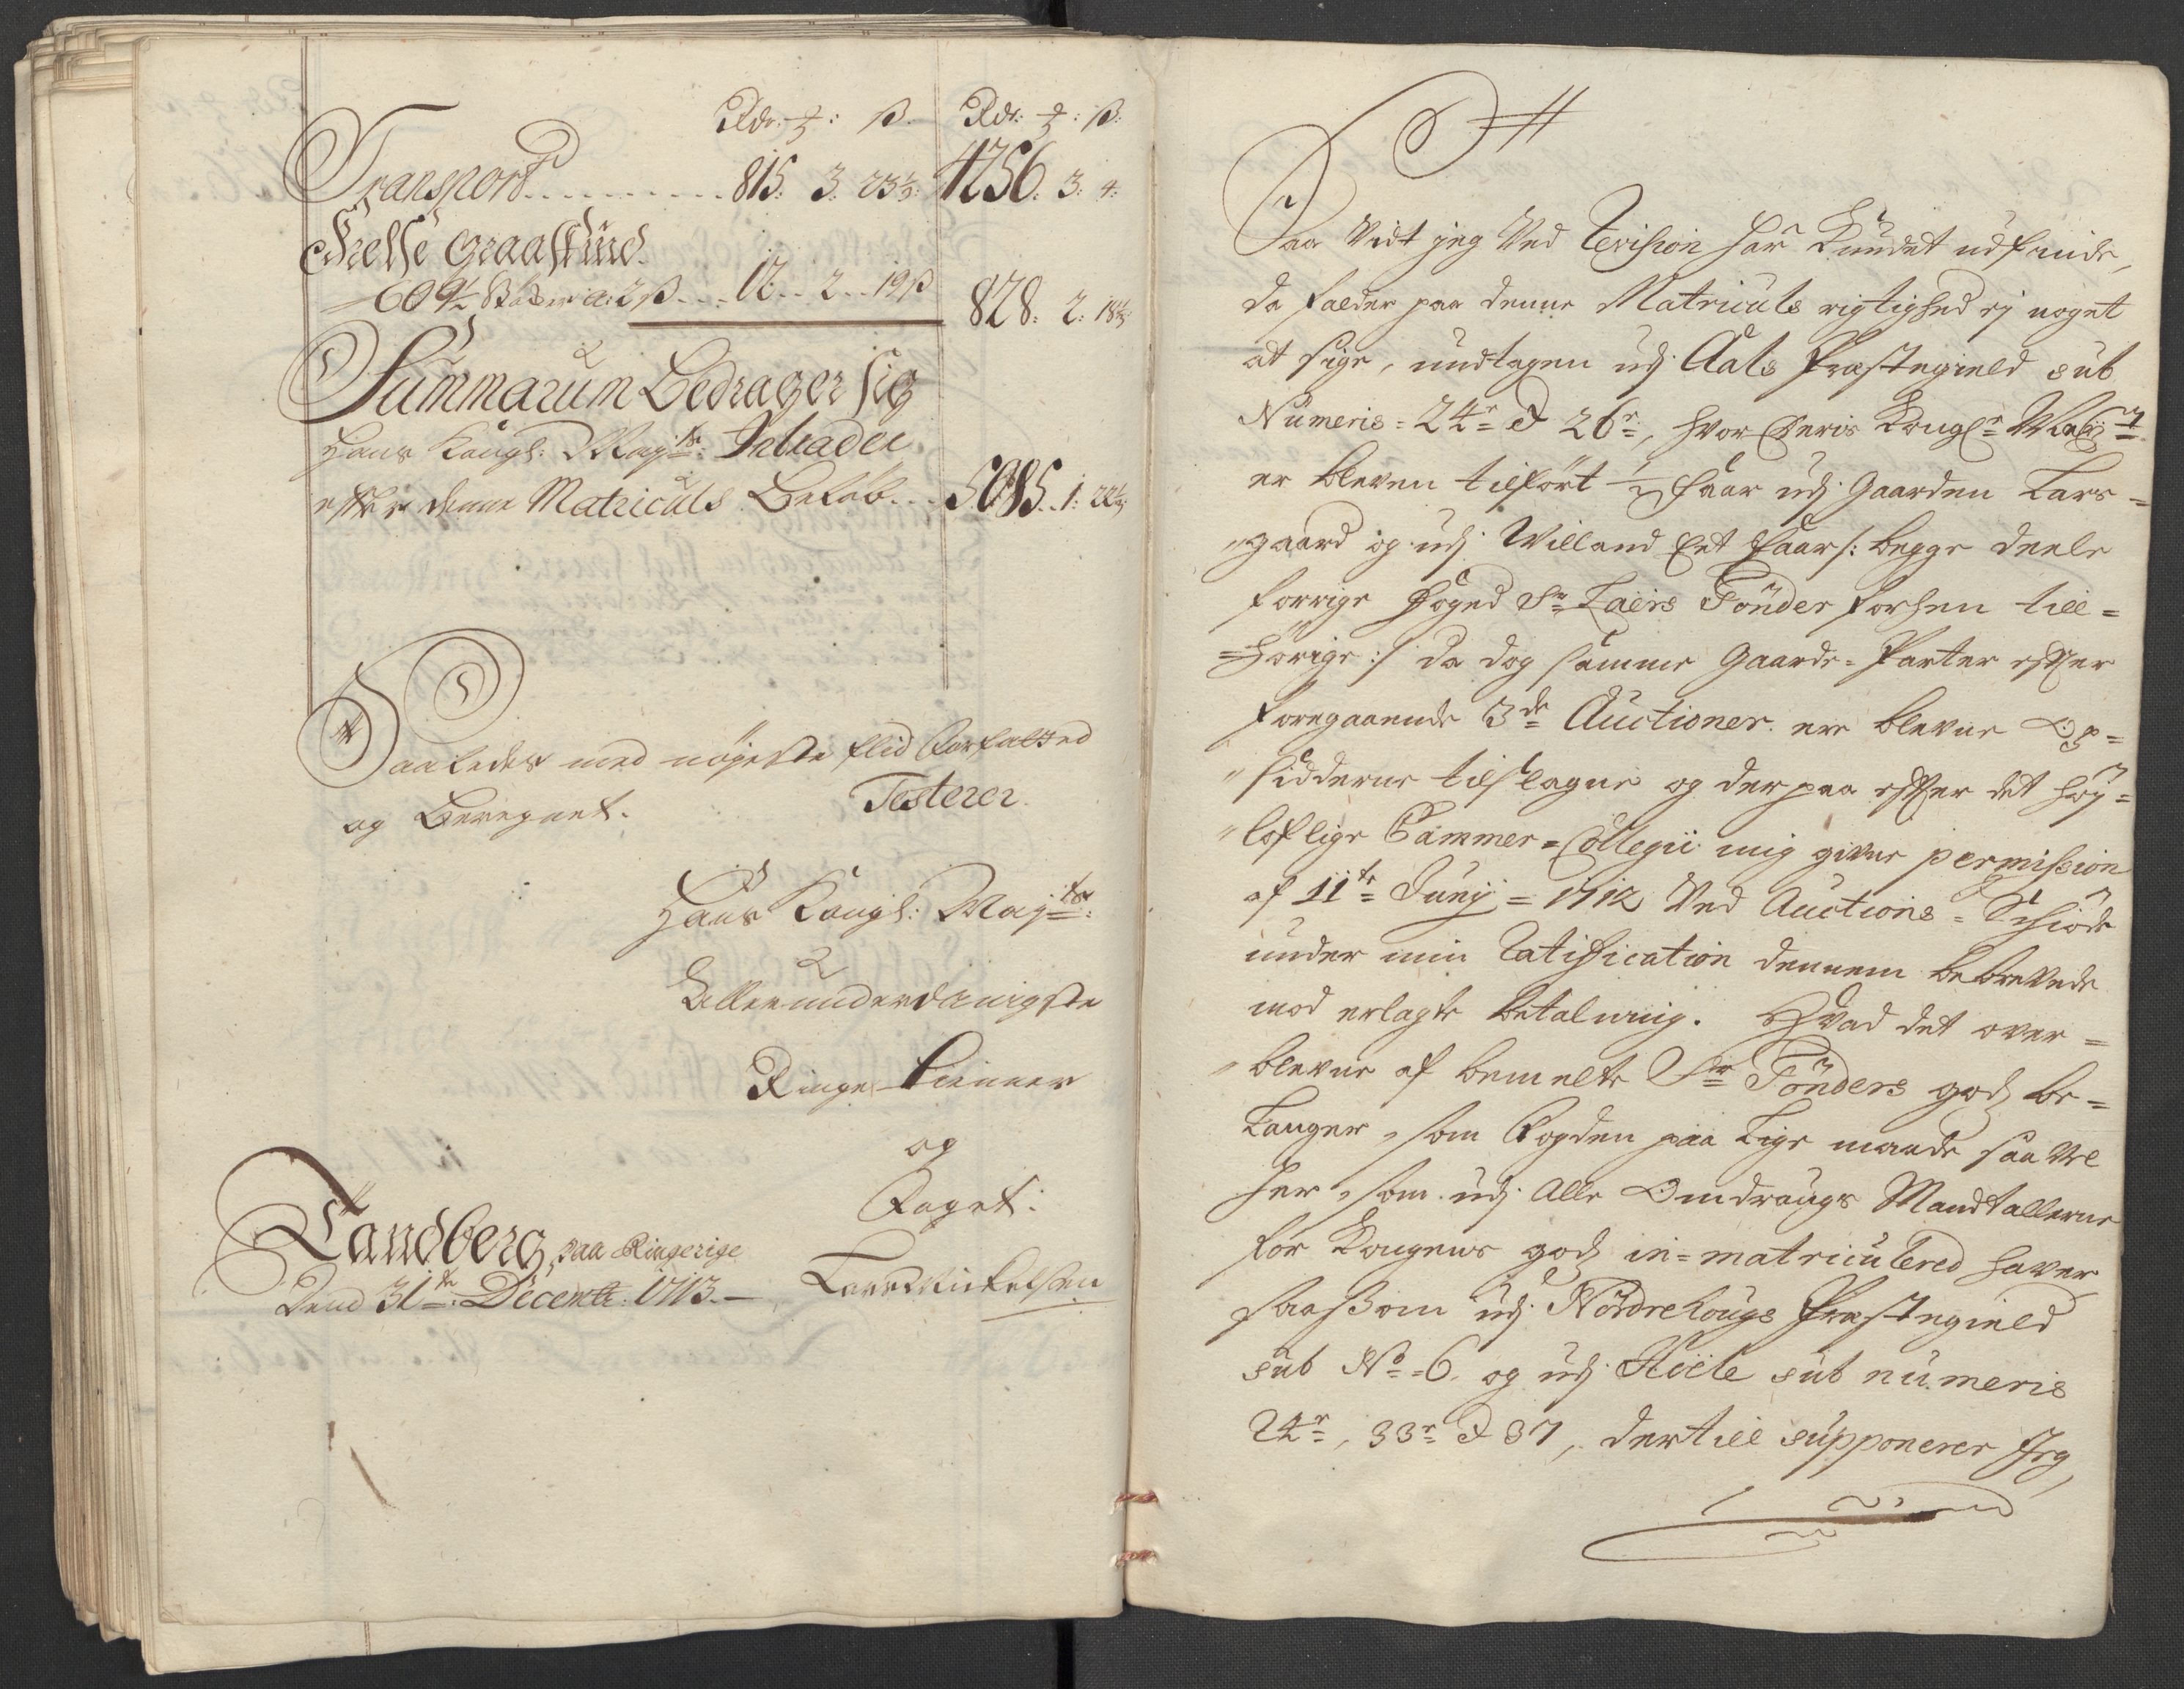 Rdr: ƶ: ß. Rdr: ƶ: ß:
Transport......... 815: 3. 23⅓: 4256. 3: 4:
Frelse Graaskind
609½ a: 2ß.... 12... 2... 19ß 828: 2: 18⅓:
Summarum Bedrager sig
Hans Kongl: Mayts: Intrader
efter denne Matriculs Beløb... 5085.. 1: 22⅓
Saaledes med nøyeste flid forfatted
og Beregnet. Testerer.
Hans Kongl: Mayts:
Allerunderdanigste
Ringe tienner
og
Foget:
Tandberg paa Ringerige
Dend 31te: Decemb: 1713.— Lars Mickelsen
Saa vidt jeg ved Revision har kundet udfinde,
da falder paa denne Matriculs rigtighed ej noget
at sige, undtagen udj Aals Præstegield sub
Numeris = 24r & 26r, hvor Hans Kongl Mayt
er bleven tilført ½ Faar udj Gaarden Lars=
=gaard og udj Willand Eet Faar /: begge deele
forrige Foged Sr Laurs Tønder forhen till=
=hørige :/ da dog samme Gaarde-Parter efter
foregaaende 3de Auctioner ere blevne Op=
=sidderne tilslagne og derpaa efter det høy=
=loflige Cammer=Collegii mig givne permission
af 11te Junij = 1712 ved Auctions=Schiøde
under min Ratification dennem bebrevede
mod erlagte betalning. Hvad det over=
=blevne af bemelte Sr Tønders godz be=
langer, som Fogden paa lige maade saa vel
her, som udj alle Omdraugs Mandtallerne
for Kongens godz in=matriculered haver
saasom udj Nordrehougs Præstegield
sub No = 6. og udj Hole sub numeris
24r, 33r & 37, dertill supponerer Jeg,